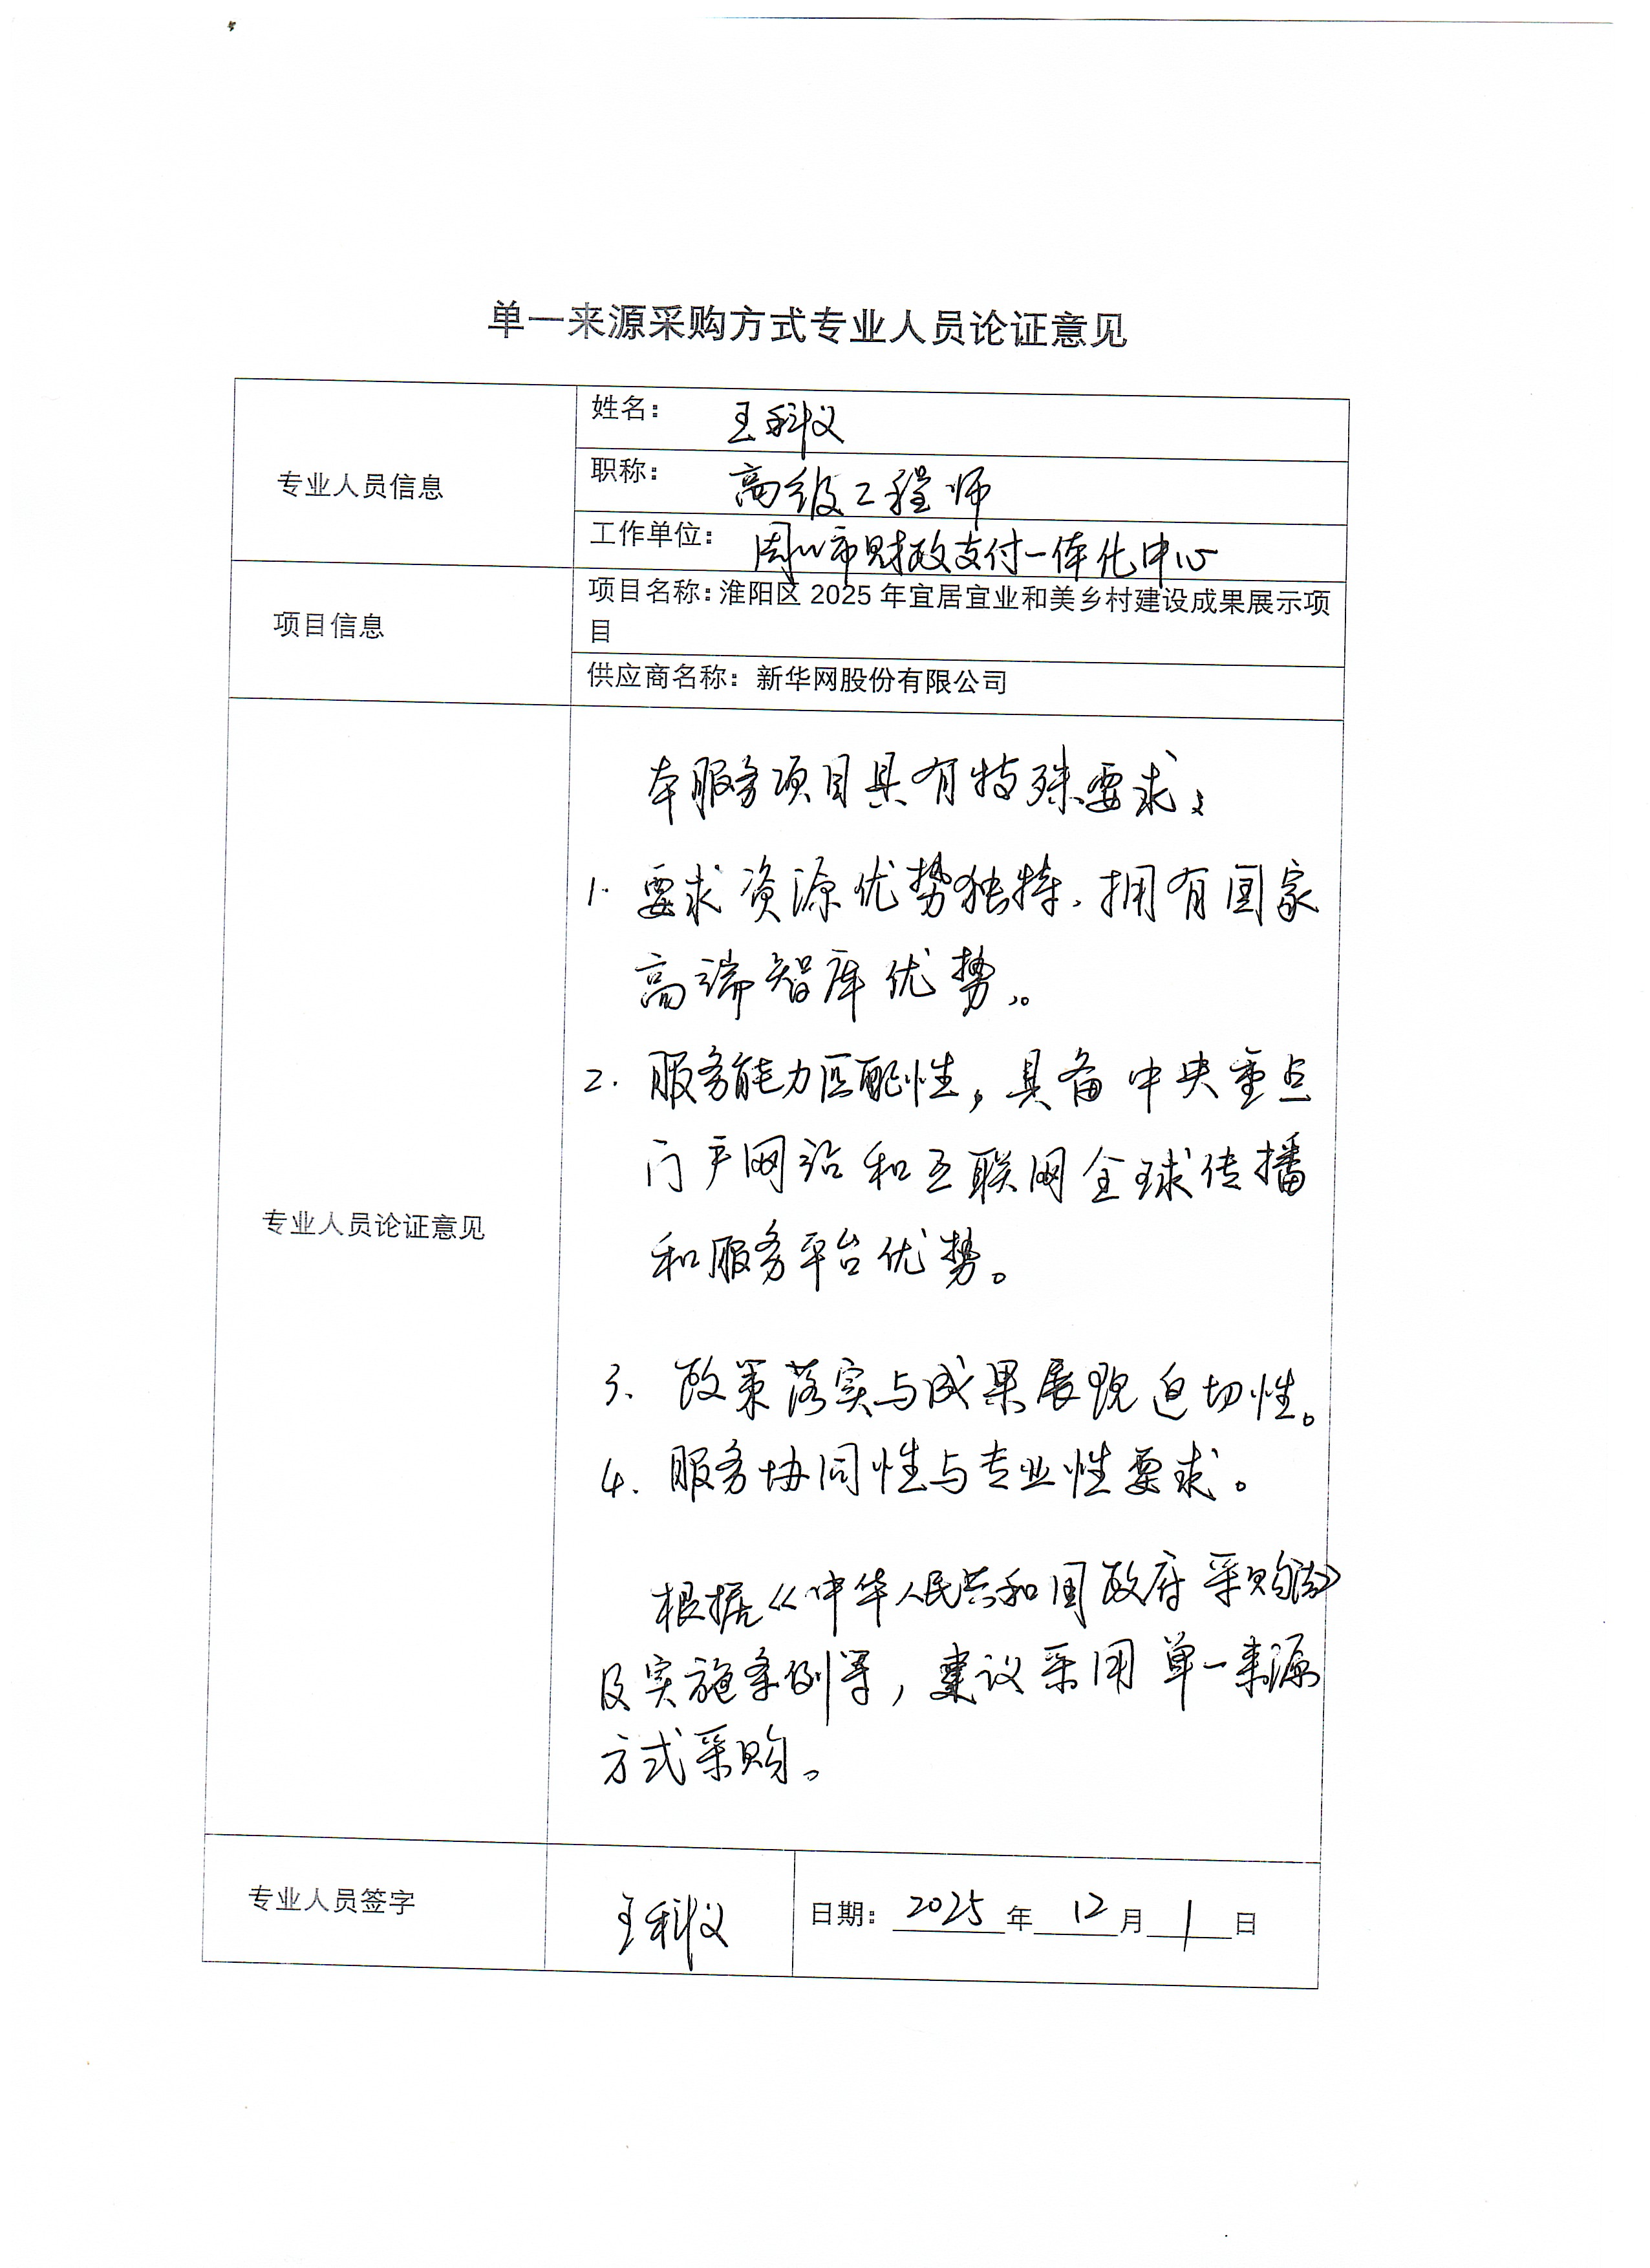 单一来源采购方式专业人员论证意见
专业人员信息
姓名： 王科义
职称： 高级工程师
工作单位： 周口市财政支付一体化中心
项目信息
项目名称：淮阳区 2025 年宜居宜业和美乡村建设成果展示项
目
供应商名称：新华网股份有限公司
专业人员论证意见
本服务项目具有特殊要求：
1. 要求资源优势独特，拥有国家
高端智库优势。
2. 服务能力匹配性，具备中央重点
门户网站和互联网全球传播
和服务平台优势。
3. 政策落实与成果展现迫切性。
4. 服务协同性与专业性要求。
根据《中华人民共和国政府采购法》
及实施条例等，建议采用单一来源
方式采购。
专业人员签字
王科义
日期： 2025 年 12 月 1 日